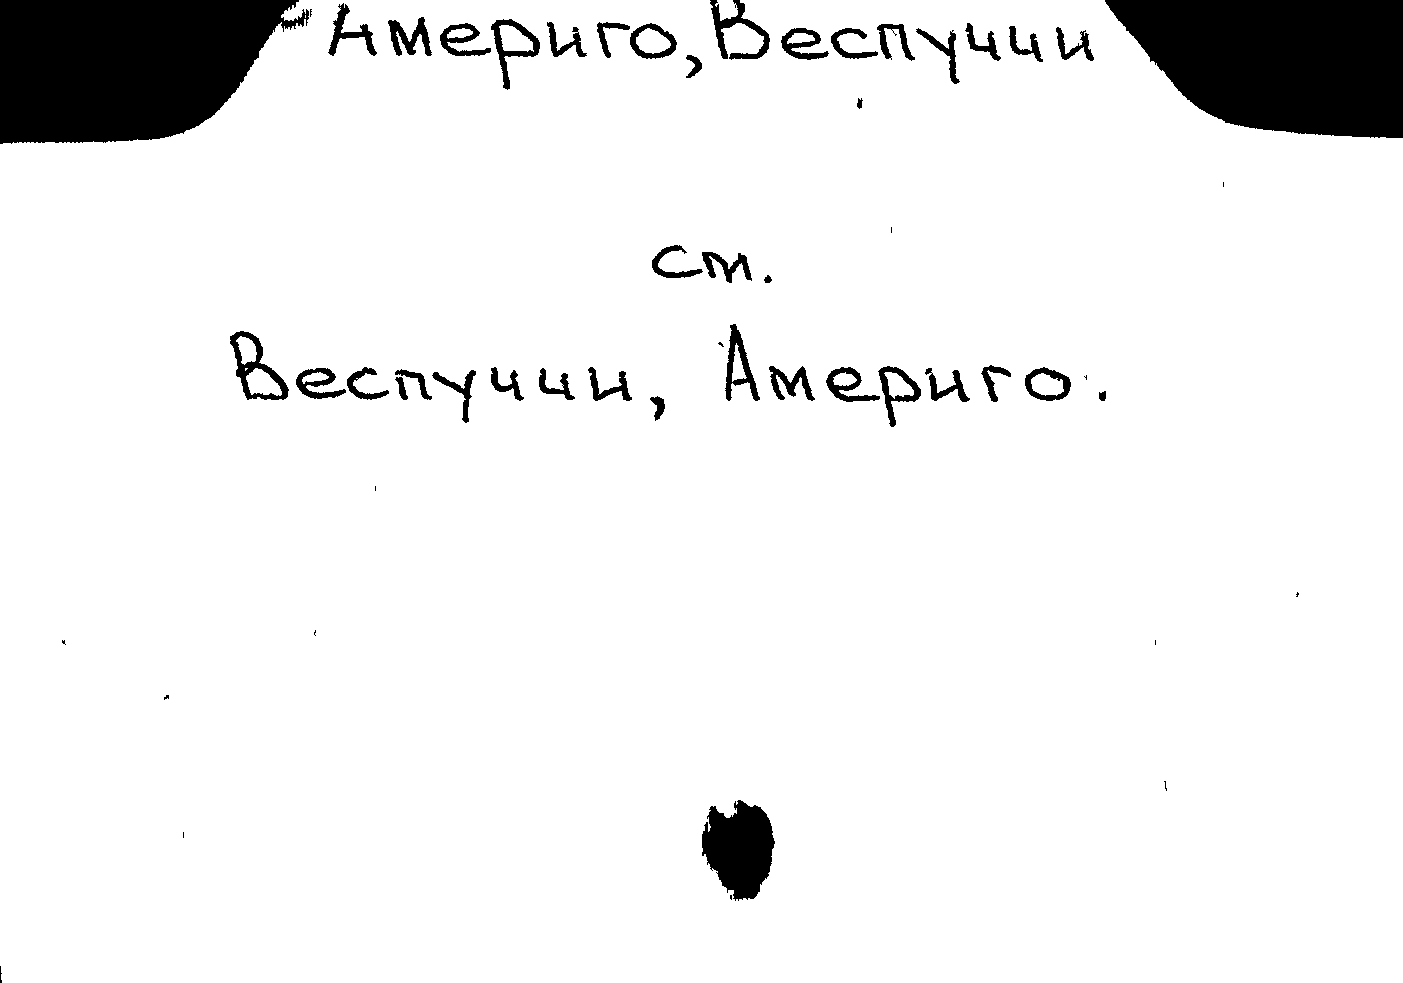 Америго, Веспуччи
см.
Веспуччи, Америго.